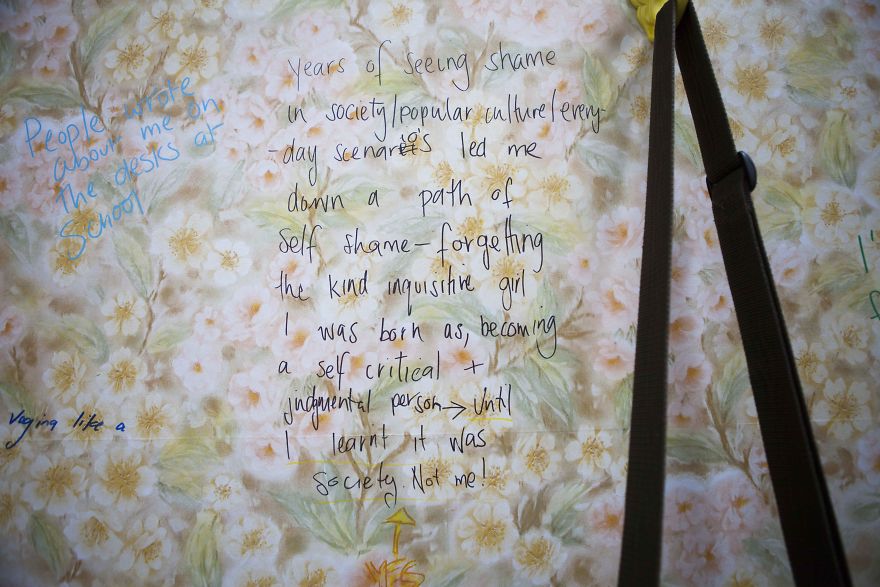 People wrote
about me on
the desks at
School
years of seeing shame
in society/popular culture/every-
-day scenario's led me
down a path of
self shame – forgetting
the kind inquisitive girl
I was born as, becoming
a self critical +
judgmental person → Until
I learnt it was
society. Not me!
YES
vagina like a
I'
f